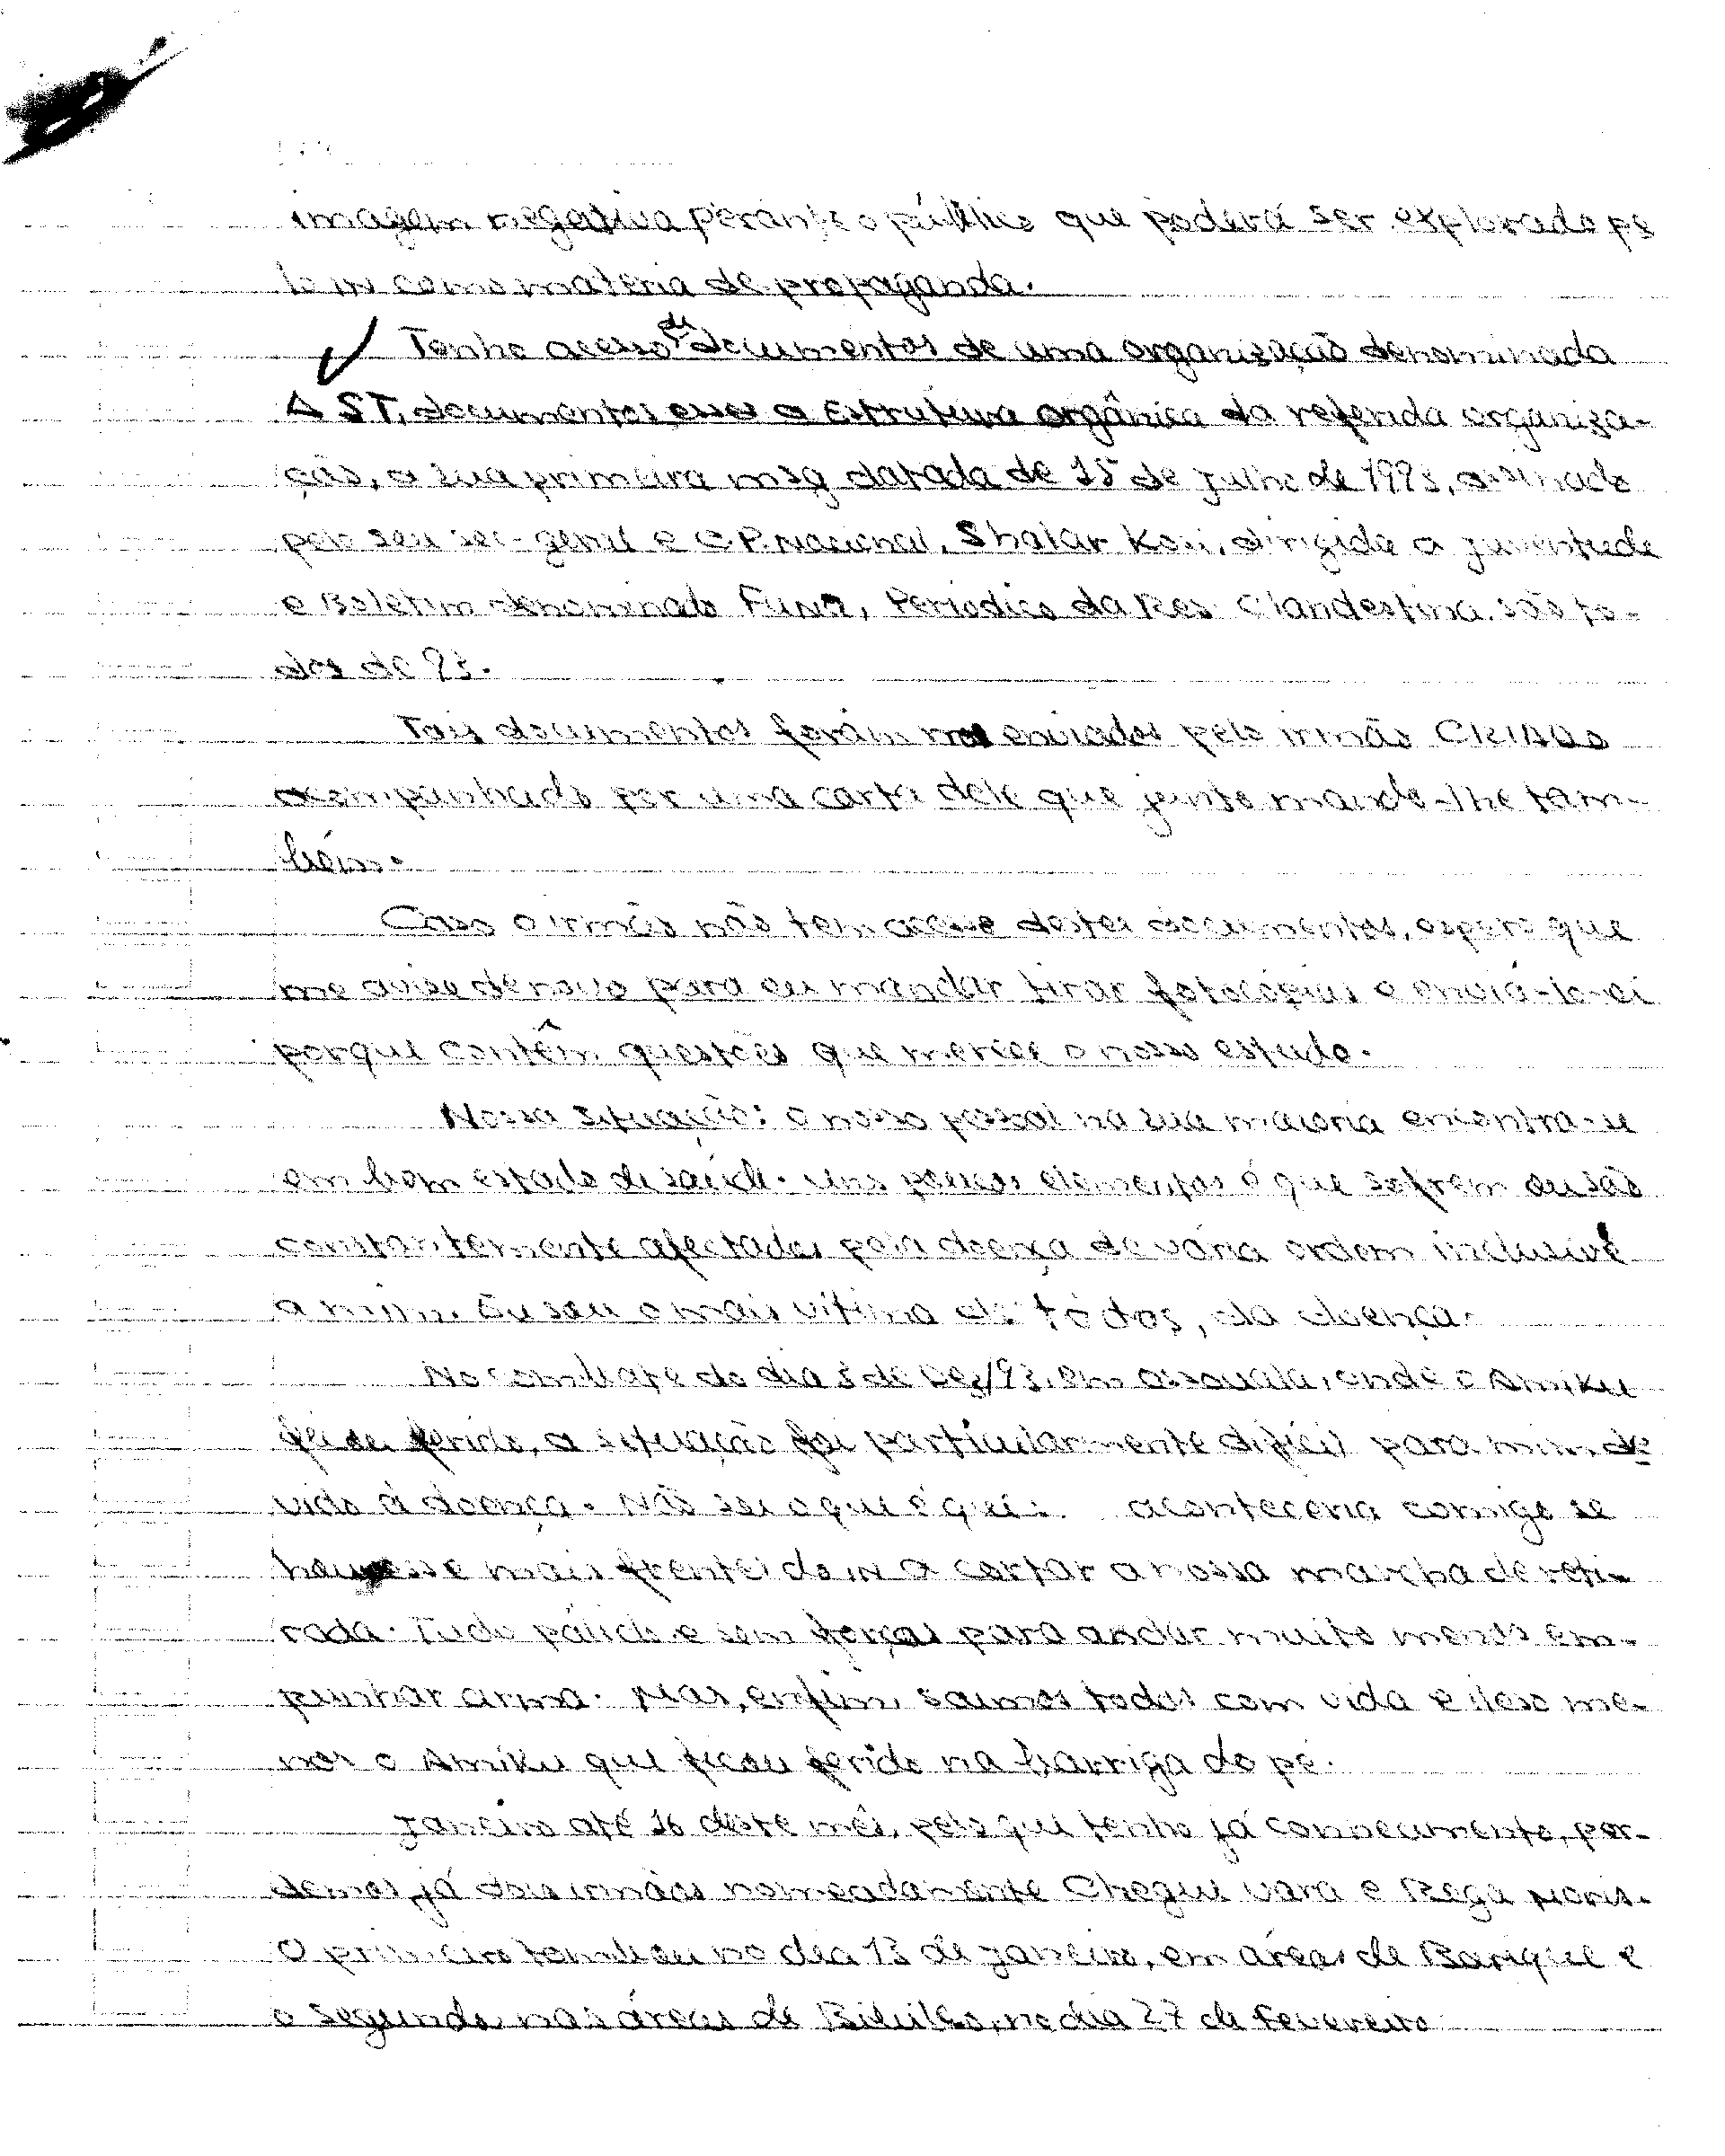 imagem negativa perante o público que poderá ser explorado pe
lo in como matéria de propaganda.
Tenho acesso de documentos de uma organização denominada
AST, documentos esses a Estrutura orgânica da referida organiza-
ção, a sua primeira msg datada de 15 de julho de 1993, assinado
pelo seu sec-geral e C.P. Nacional, Shalar Kosi, dirigida a juventude
e Boletim denominado Funu, Periodico da Res. Clandestina. são to-
dos de 93.
Tais documentos foram nos enviados pelo irmão CRIADO
acompanhado por uma carta dele que junto mando-lhe tam-
bém.
Caso o irmão não tem acesso destes documentos, espero que
me avise de novo para eu mandar tirar fotocópias e enviá-lo-ei
porque contêm questões que merece o nosso estudo.
Nossa situação: o nosso pessoal na sua maioria encontra-se
em bom estado de saúde. Uns poucos elementos é que sofrem ou são
constantemente afectados pela doença de vária ordem inclusivé
a mim. Eu sou o mais vítima de todos, da doença.
No combate do dia 5 de Dez/93, em ossouala, onde o Amiku
ferido, a situação foi particularmente difícil para mim de
vido à doença. Não sei o que é que aconteceria comigo se
houvesse mais frentes do in a cortar a nossa marcha de reti-
rada. Tudo pálido e sem forças para andar muito menos em-
punhar arma. Mas, enfim, saimos todos com vida e ileso me-
nos o Amiku que ficou ferido na barriga do pé.
Janeiro até 16 deste mês, pelo que tenho já conhecimento, per-
demos já dois irmãos nomeadamente Chegui vara e Rega Moris.
O primeiro tombou no dia 13 de janeiro, em áreas de Barique e
o segundo nas áreas de Bibileo, no dia 27 de fevereiro